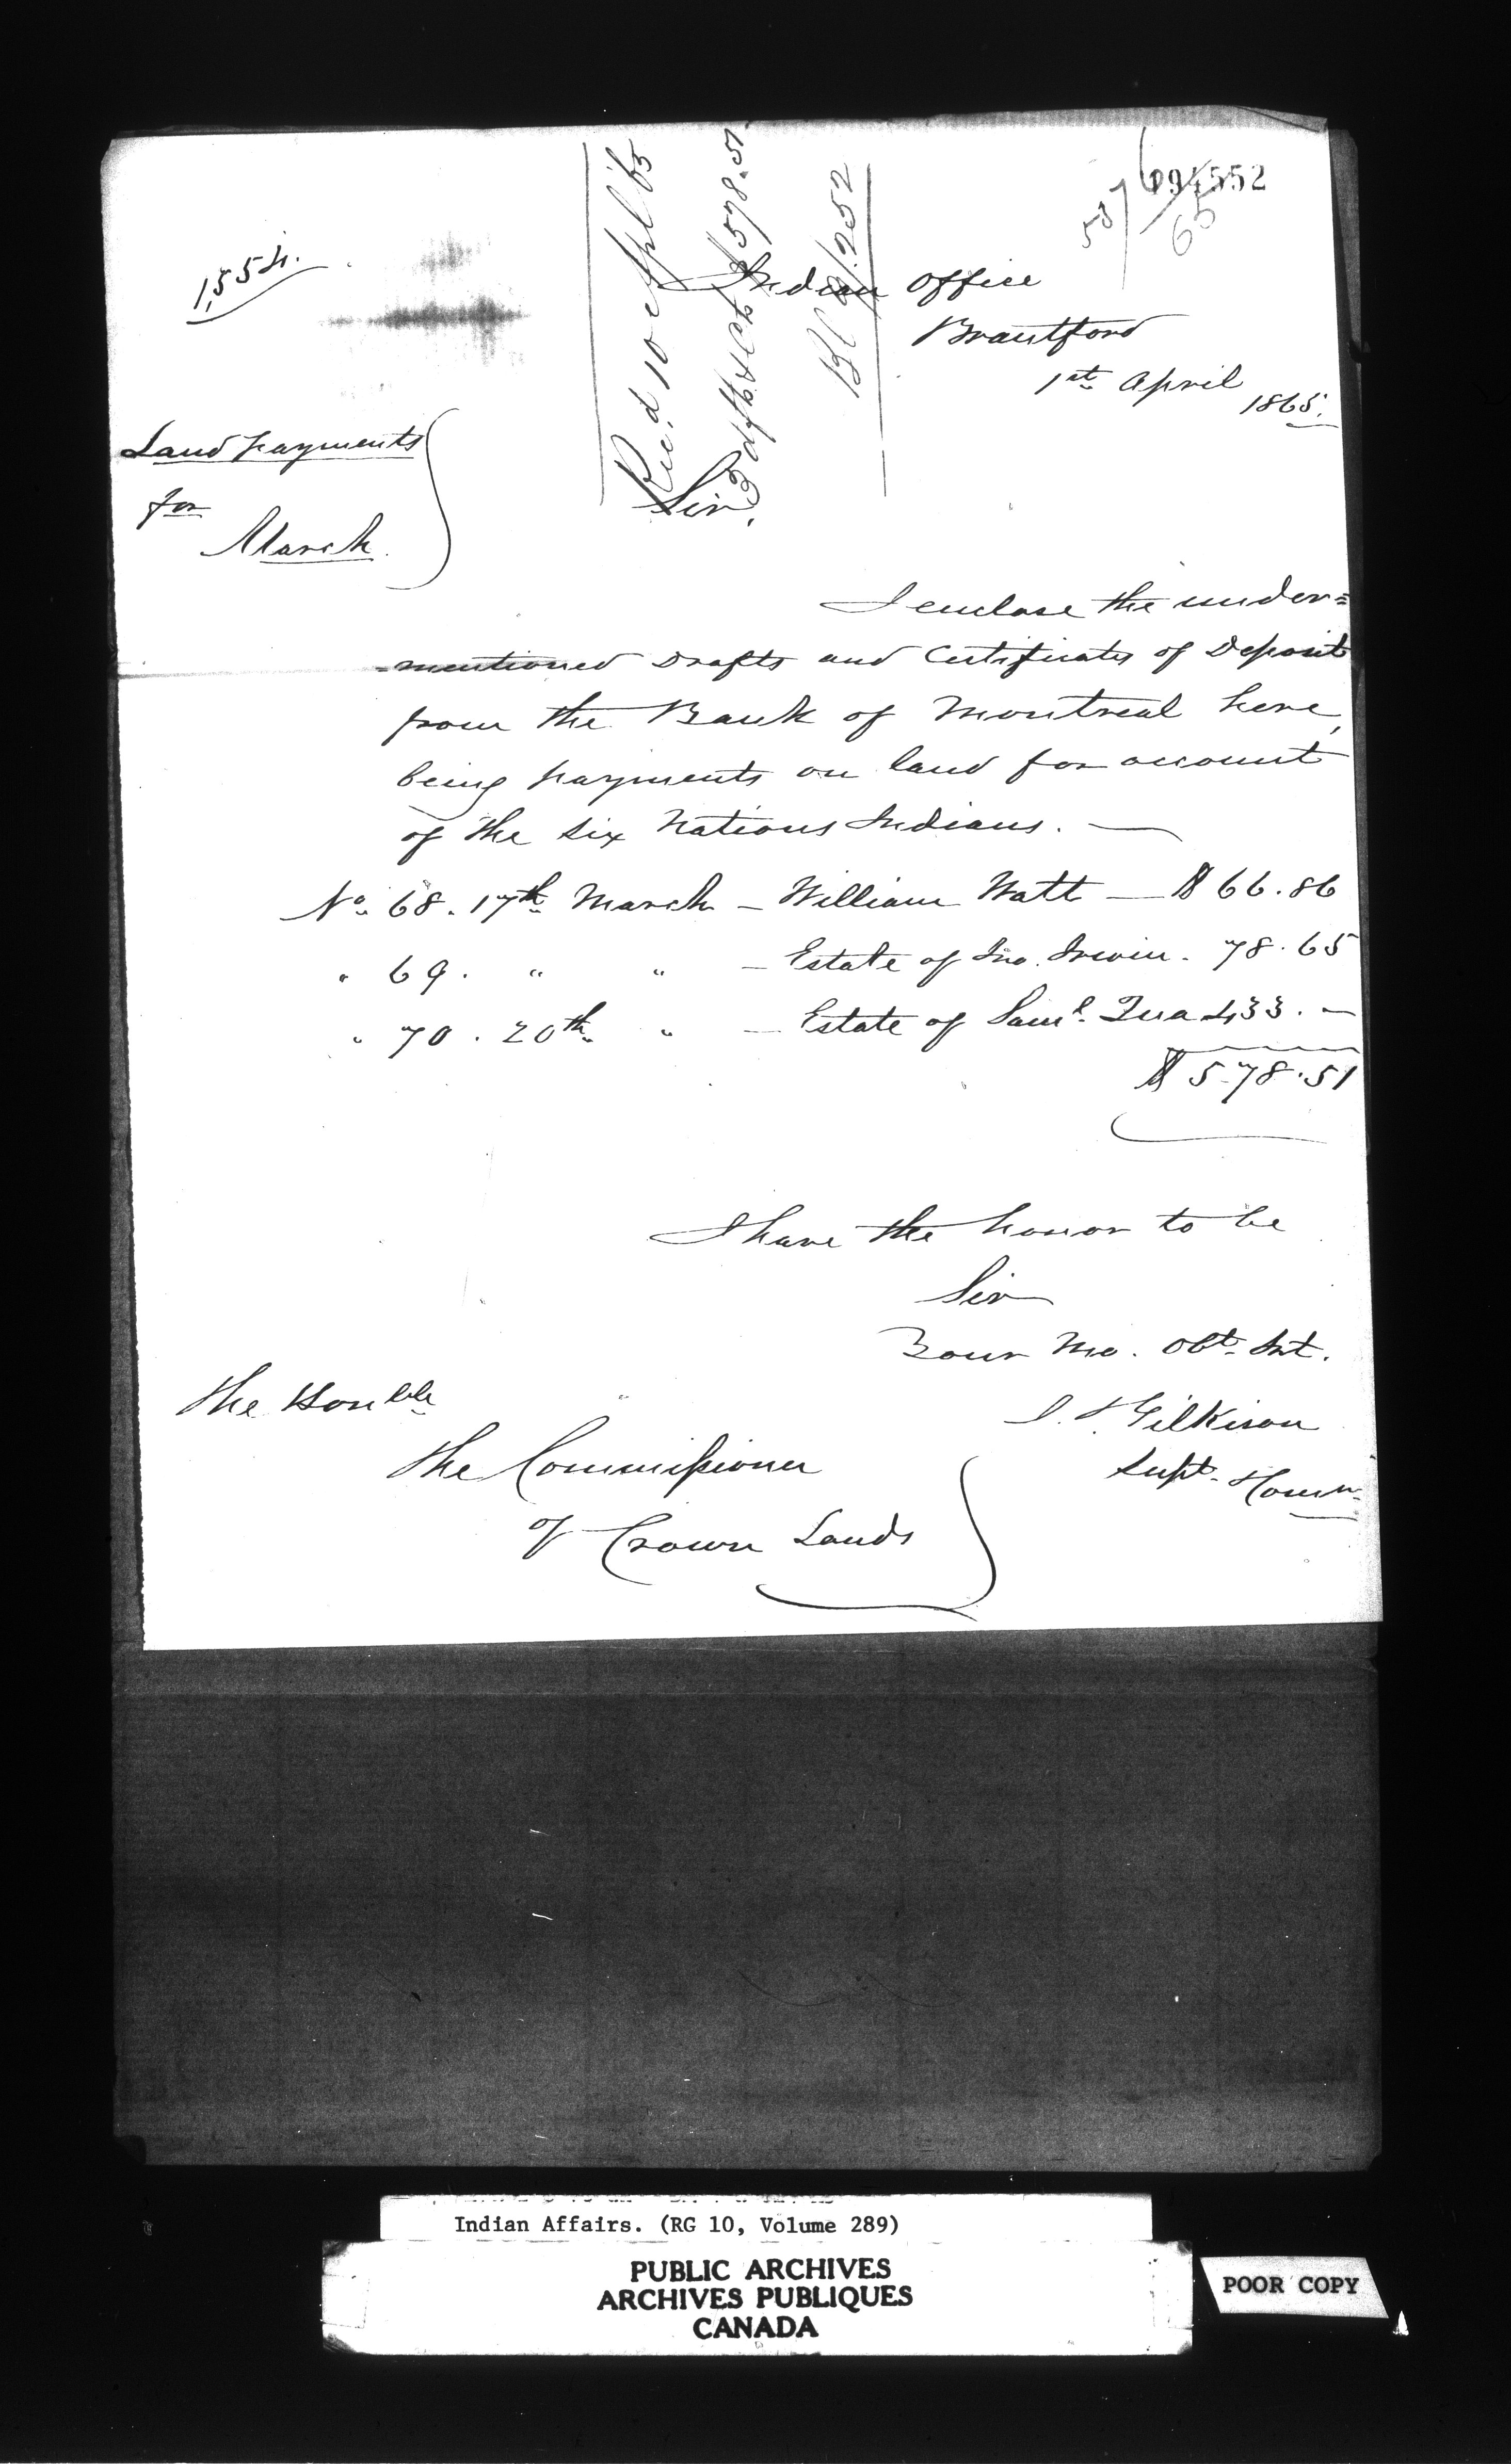 194552
587/65
1,554.
Recd 10 Apl 65
3 dfts & Cts $578.51
Indian Office
Brantford
1st April
1865.
Land payments
for
March.
Sir,
I enclose the under=
=mentioned Drafts and Certificates of Deposit
from the Bank of Montreal here,
being payments on land for account
of the Six Nations Indians. —
No. 68. 17th March — William Watt — $66.86
" 69. " " — Estate of Jno. Irwin. 78.65
" 70. 20th " — Estate of Saml. Qua 433. —
$578.51
I have the honor to be
Sir
Your Mo. Obt. Svt.
J. T. Gilkison
Supt. Commr.
The Honble
The Commissioner
of Crown Lands
Indian Affairs. (RG 10, Volume 289)
PUBLIC ARCHIVES
ARCHIVES PUBLIQUES
CANADA
POOR COPY